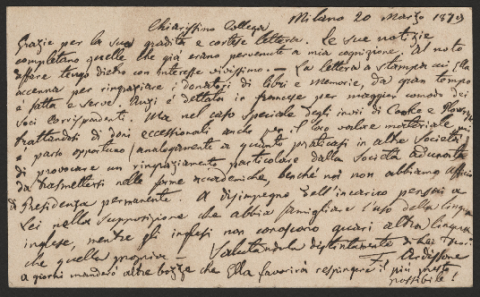 Milano 20 Marzo 1879
Chiarissimo Collega
Grazie per la sua gradita e cortese lettera. Le sue notizie
completano quelle che già erano pervenute a mia cognizione. Al noto
affare tengo dietro con interesse vivissimo. — La lettera a stampa cui Ella
accenna per ringraziare i donatori di libri e memorie, da gran tempo
è fatta e serve. Anzi è dettata in francese per maggior comodo dei
Soci Corrispondenti. Ma nel caso speciale degli invii di Cooke e
trattandosi di doni eccezionali anche per il loro valore materiale, mi
è parso opportuno (analogamente a quanto praticasi in altre Società)
di provocare un ringraziamento particolare dalla Società adunata
da trasmettersi nelle forme accademiche, benchè noi non abbiamo Ufficio
di Presidenza permanente. A disimpegno dell'incarico pensai a
Lei nella supposizione che abbia famigliare l'uso della lingua
inglese, mentre gli inglesi non conoscono guari altra lingua
che quella propria — Salutandola distintamente di Lei
F. Ardissone
a giorni manderò altre bozze che Ella favorirà respingere il più presto
possibile!